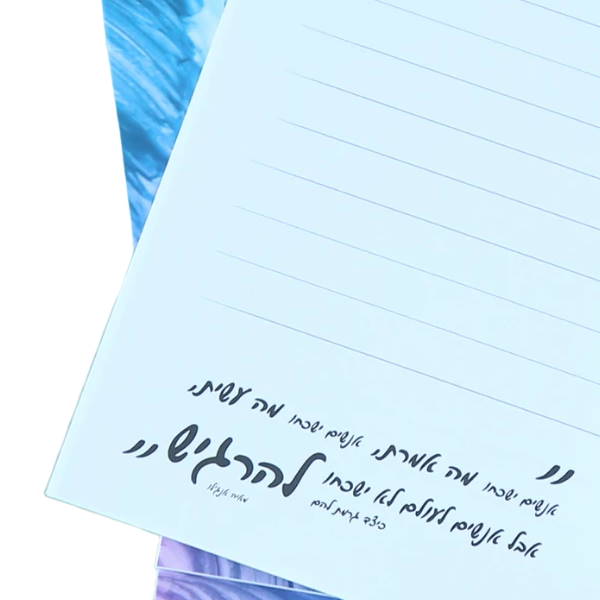 ,, אנשים ישכחו מה אמרת, אנשים ישכחו מה עשית,
אבל אנשים לעולם לא ישכחו כיצד גרמת להם להרגיש ,,
מאיה אנג'לו